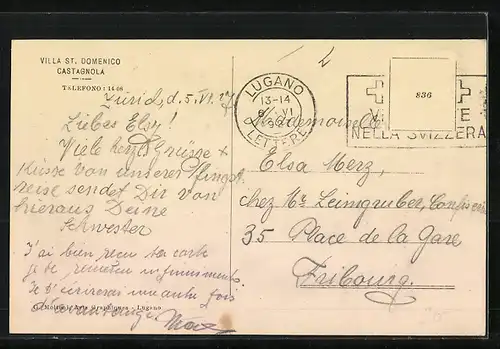 VILLA ST. DOMENICO
CASTAGNOLA
TELEFONO: 14 46
Zürich, d. 5. VI. 
Liebes Elsy!
Viele herzl. Grüsse +
Küsse von unserer Pfingst-
reise sendet Dir von
hieraus Deine
Schwester
J'ai bien reçu ta carte
je te remercie infiniment
Je t'écrirai une autre fois
d'avantage.
Arts Graphiques - Lugano
LUGANO
13-14
VI
LETTERE
836
NELLA SVIZZERA
Mademoiselle
Elsa Merz,
chez Mr. Leimgruber, Confiserie
35 Place de la Gare
Fribourg.